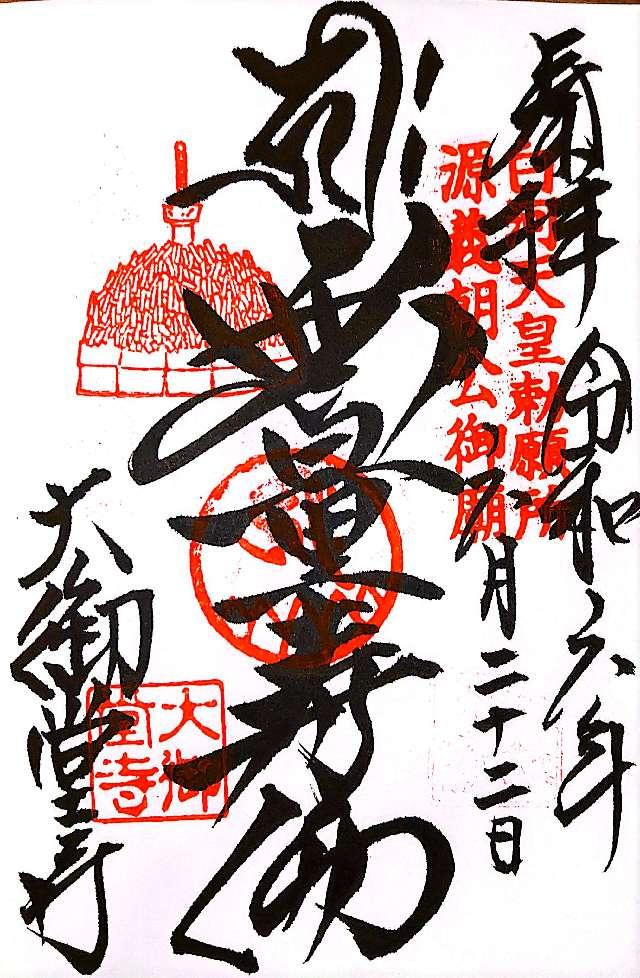 奉拝
令和六年
五月二十二日
白河天皇勅願所
源義朝公御廟
無量寿佛
大御堂寺
大御
堂寺